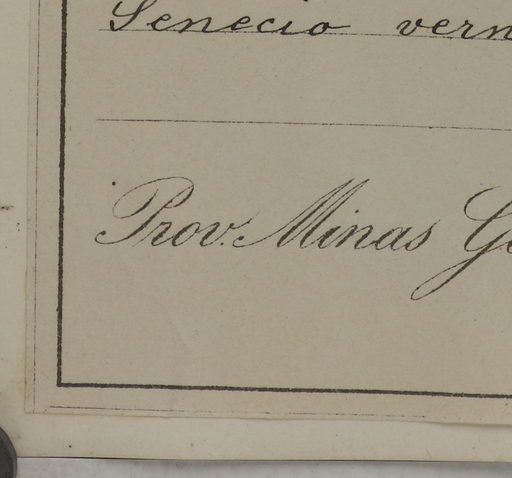 Senecio vern
Prov. Minas Ge